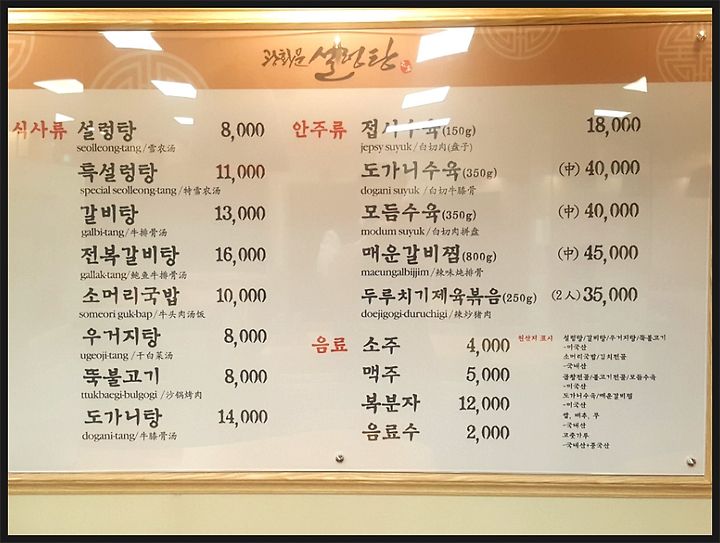 광화문 설렁탕
식사류
설렁탕 8,000
seolleong-tang/雪农汤
특설렁탕 11,000
special seolleong-tang/特雪农汤
갈비탕 13,000
galbi-tang/牛排骨汤
전복갈비탕 16,000
gallak-tang/鲍鱼牛排骨汤
소머리국밥 10,000
someori guk-bap/牛头肉汤饭
우거지탕 8,000
ugeoji-tang/干白菜汤
뚝불고기 8,000
ttukbaegi-bulgogi/沙锅烤肉
도가니탕 14,000
dogani-tang/牛膝骨汤
안주류
접시수육(150g) 18,000
jepsy suyuk/白切肉(盘子)
도가니수육(350g) (中) 40,000
dogani suyuk/白切牛膝骨
모듬수육(350g) (中) 40,000
modum suyuk/白切肉拼盘
매운갈비찜(800g) (中) 45,000
maeungalbijjim/辣味炖排骨
두루치기제육볶음(250g) (2人) 35,000
doejigogi-duruchigi/辣炒猪肉
음료
소주 4,000
맥주 5,000
복분자 12,000
음료수 2,000
원산지 표시
설렁탕/갈비탕/우거지탕/뚝불고기
-미국산
소머리국밥/김치전골
-국내산
곱창전골/불고기전골/모듬수육
-미국산
도가니수육/매운갈비찜
-미국산
쌀, 배추, 무
-국내산
고춧가루
-국내산+중국산